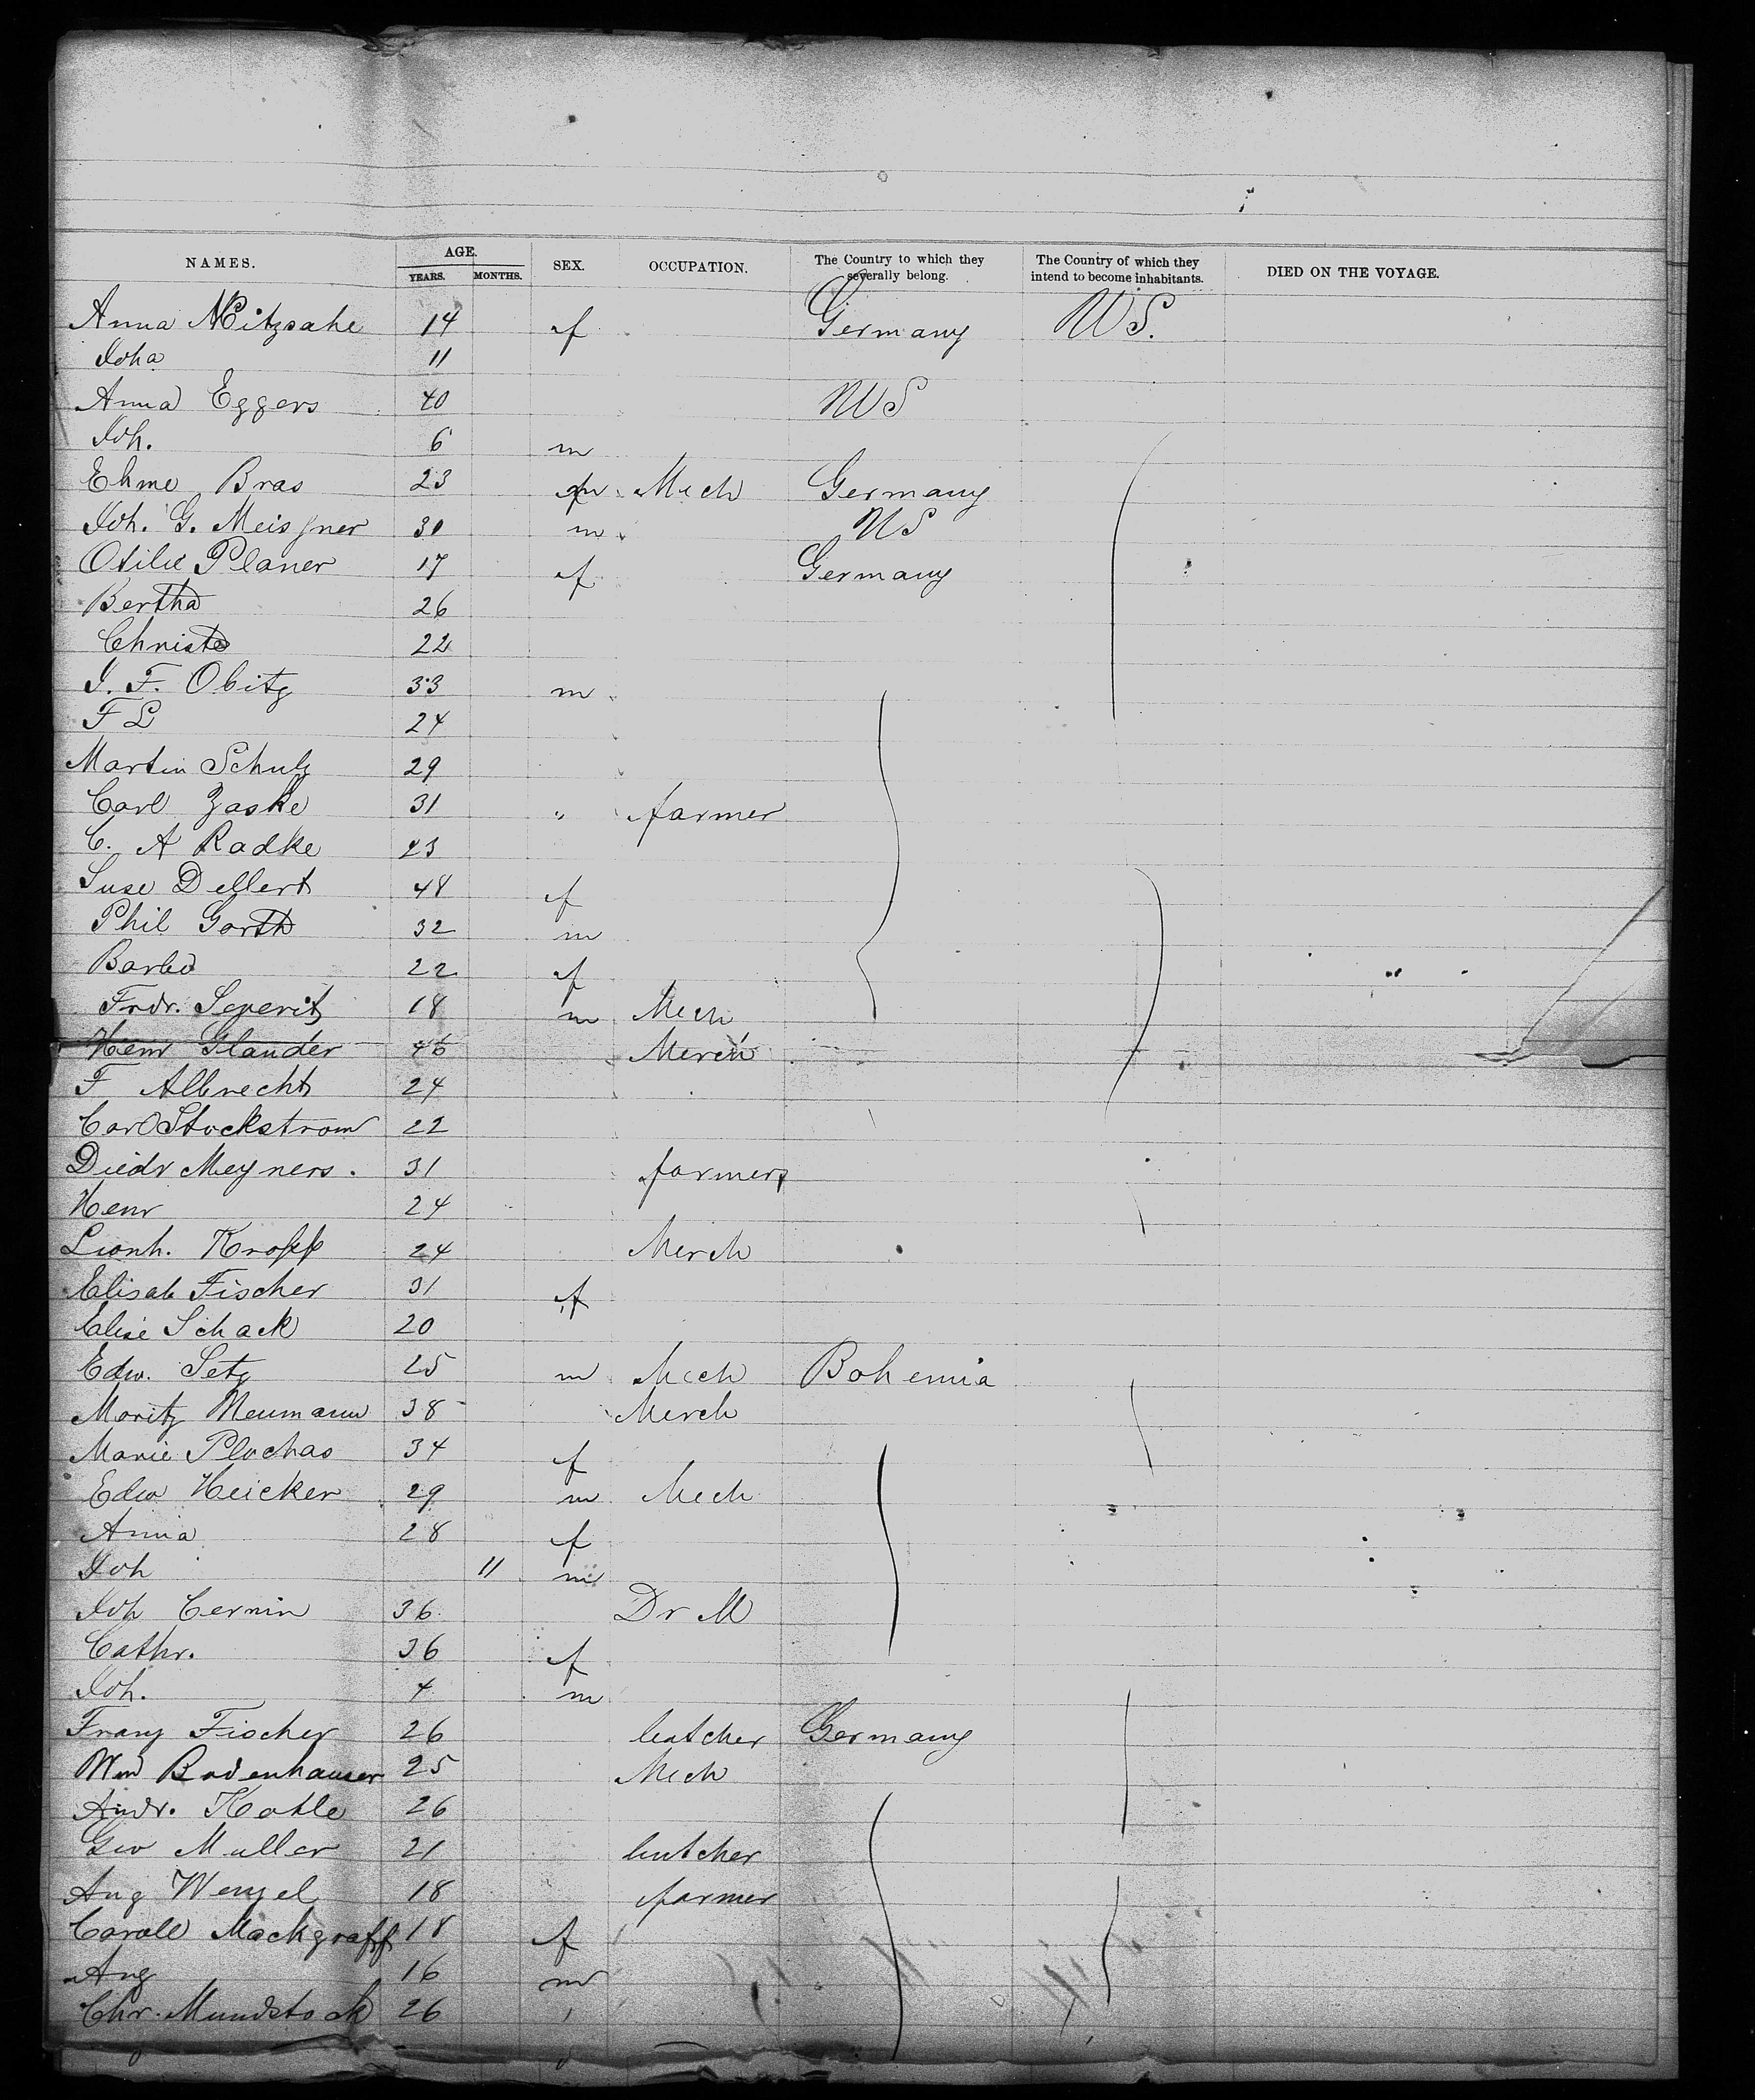 NAMES. AGE. YEARS. MONTHS. SEX. OCCUPATION. The Country to which they severally belong. The Country of which they intend to become inhabitants. DIED ON THE VOYAGE.
Anna Nitzsahe 14 f Germany US.
Joha 11
Anna Eggers 40 US
Joh. 6 m
Ehme Bras 23 m Mech Germany
Joh. G. Meissner 30 m US
Otilie Planer 17 f Germany
Bertha 26
Christe 22
J. F. Obitz 33 m
F L 24
Martin Schulz 29
Carl Zaske 31 " farmer
C. A Radke 23
Suse Dellert 48 f
Phil Gorth 32 m
Barba 22 f
Frdr. Seperitz 18 m Mech
Henr Glander 46 Merch
F Albrecht 24
Carl Stockstrom 22
Diedr Meyners. 31 farmer
Henr 24
Lionh. Kropp 24 Merch
Elisab Fischer 31 f
Elise Schack 20
Edw. Setz 25 m Mech Bohemia
Moritz Neumann 38 Merch
Marie Plochas 34 f
Edw Heicker 29 m Mech
Anna 28 f
Joh 11 m
Joh Cernin 36 Dr M
Cathr. 36 f
Joh. 4 m
Franz Fischer 26 butcher Germany
Wm Bodenhauser 25 Mech
Andr. Kohle 26
Geo Muller 21 butcher
Aug Wenzel 18 farmer
Caroll Mackgraff 18 f
Aug 16 m
Chr. Mundstock 26 "